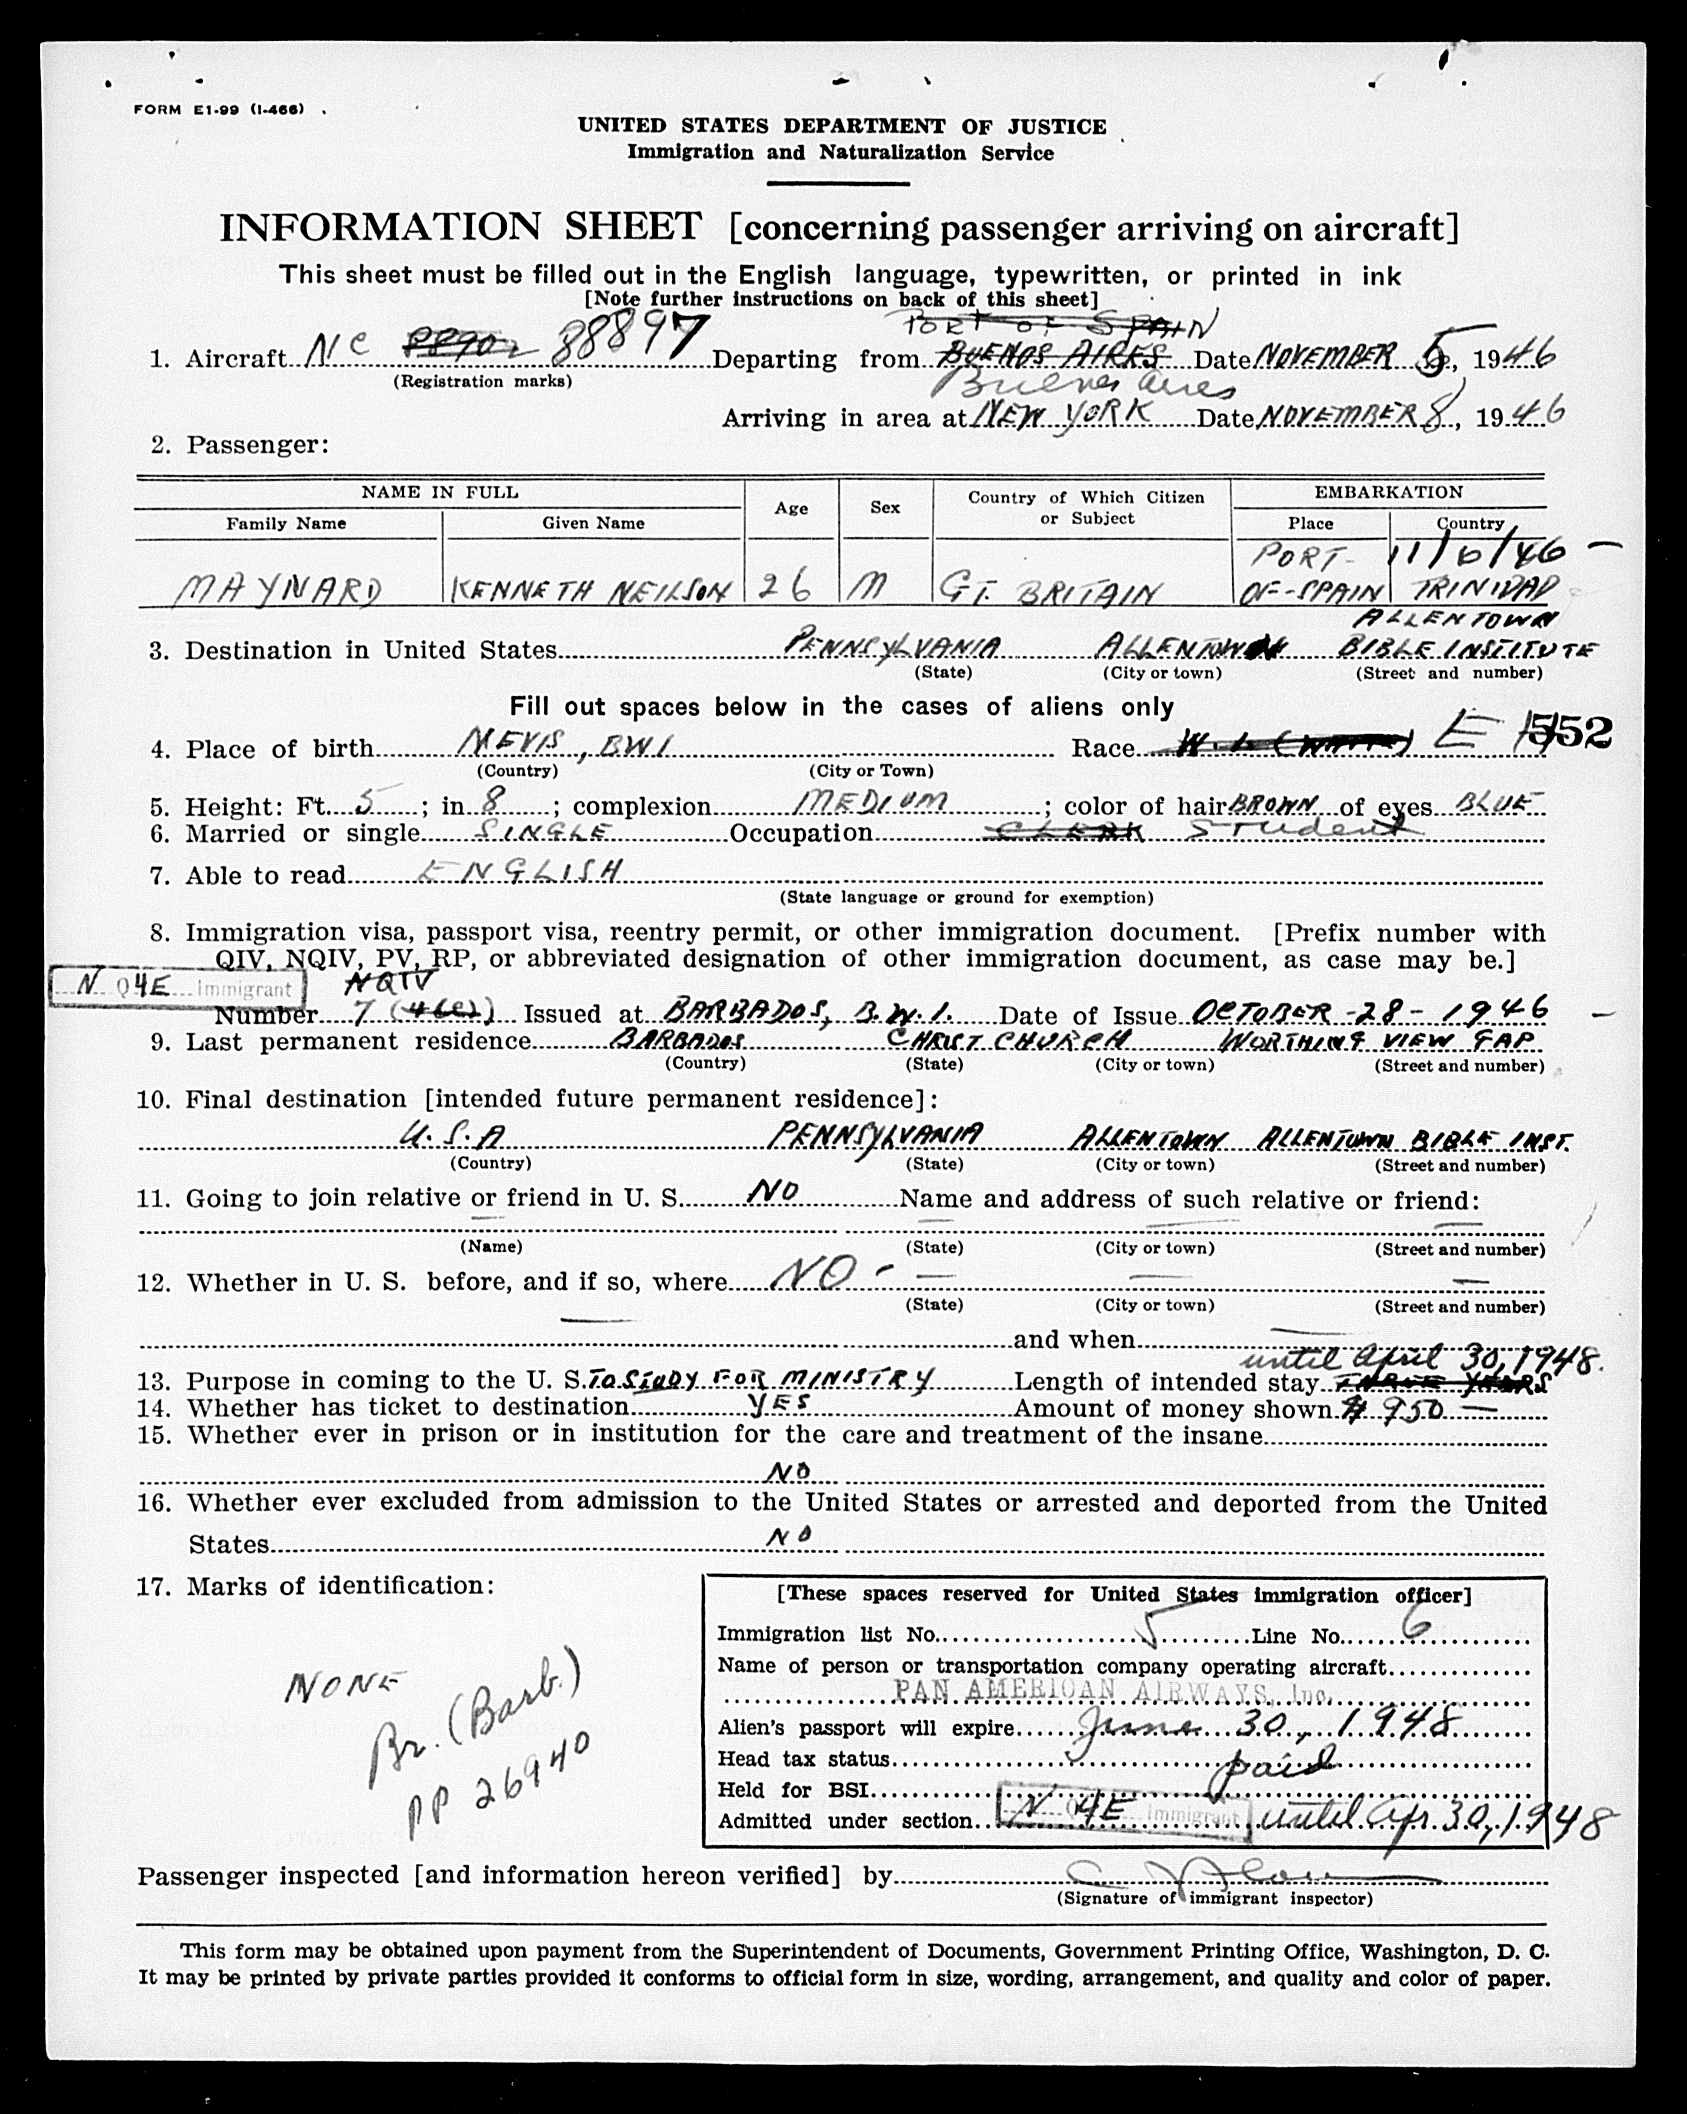 FORM E1-99 (I-466)
UNITED STATES DEPARTMENT OF JUSTICE
Immigration and Naturalization Service
INFORMATION SHEET [concerning passenger arriving on aircraft]
This sheet must be filled out in the English language, typewritten, or printed in ink
[Note further instructions on back of this sheet]
PORT OF SPAIN
1. Aircraft NC 88897 Departing from BUENOS AIRES Date NOVEMBER 5, 1946
(Registration marks) Buenos Aires
Arriving in area at NEW YORK Date NOVEMBER 8, 1946
2. Passenger:
NAME IN FULL Age Sex Country of Which Citizen or Subject EMBARKATION
Family Name Given Name Place Country
PORT- 11/6/46 -
MAYNARD KENNETH NEILSON 26 M GT. BRITAIN OF-SPAIN TRINIDAD
ALLENTOWN
3. Destination in United States PENNSYLVANIA ALLENTOWN BIBLE INSTITUTE
(State) (City or town) (Street and number)
Fill out spaces below in the cases of aliens only
4. Place of birth NEVIS, BWI Race E 552
(Country) (City or Town)
5. Height: Ft. 5; in. 8; complexion MEDIUM; color of hair BROWN of eyes BLUE
6. Married or single SINGLE Occupation CLERK Student
7. Able to read ENGLISH
(State language or ground for exemption)
8. Immigration visa, passport visa, reentry permit, or other immigration document. [Prefix number with
QIV, NQIV, PV, RP, or abbreviated designation of other immigration document, as case may be.]
N Q 4E Immigrant NQIV
Number 7 (4(e)) Issued at BARBADOS, B.W.I. Date of Issue OCTOBER -28- 1946
9. Last permanent residence BARBADOS CHRIST CHURCH WORTHING VIEW GAP
(Country) (State) (City or town) (Street and number)
10. Final destination [intended future permanent residence]:
U.S.A PENNSYLVANIA ALLENTOWN ALLENTOWN BIBLE INST.
(Country) (State) (City or town) (Street and number)
11. Going to join relative or friend in U. S. NO Name and address of such relative or friend:
(Name) (State) (City or town) (Street and number)
12. Whether in U. S. before, and if so, where NO -
(State) (City or town) (Street and number)
and when
until April 30, 1948.
13. Purpose in coming to the U. S. TO STUDY FOR MINISTRY Length of intended stay THREE YEARS
14. Whether has ticket to destination YES Amount of money shown $ 950 -
15. Whether ever in prison or in institution for the care and treatment of the insane
NO
16. Whether ever excluded from admission to the United States or arrested and deported from the United
States NO
17. Marks of identification:
NONE
Br. (Barb.)
PP 26940
[These spaces reserved for United States immigration officer]
Immigration list No. 5 Line No. 6
Name of person or transportation company operating aircraft
PAN AMERICAN AIRWAYS, Inc.
Alien's passport will expire June 30, 1948
Head tax status paid
Held for BSI
Admitted under section N Q 4E Immigrant until Apr. 30, 1948
Passenger inspected [and information hereon verified] by
(Signature of immigrant inspector)
This form may be obtained upon payment from the Superintendent of Documents, Government Printing Office, Washington, D. C.
It may be printed by private parties provided it conforms to official form in size, wording, arrangement, and quality and color of paper.